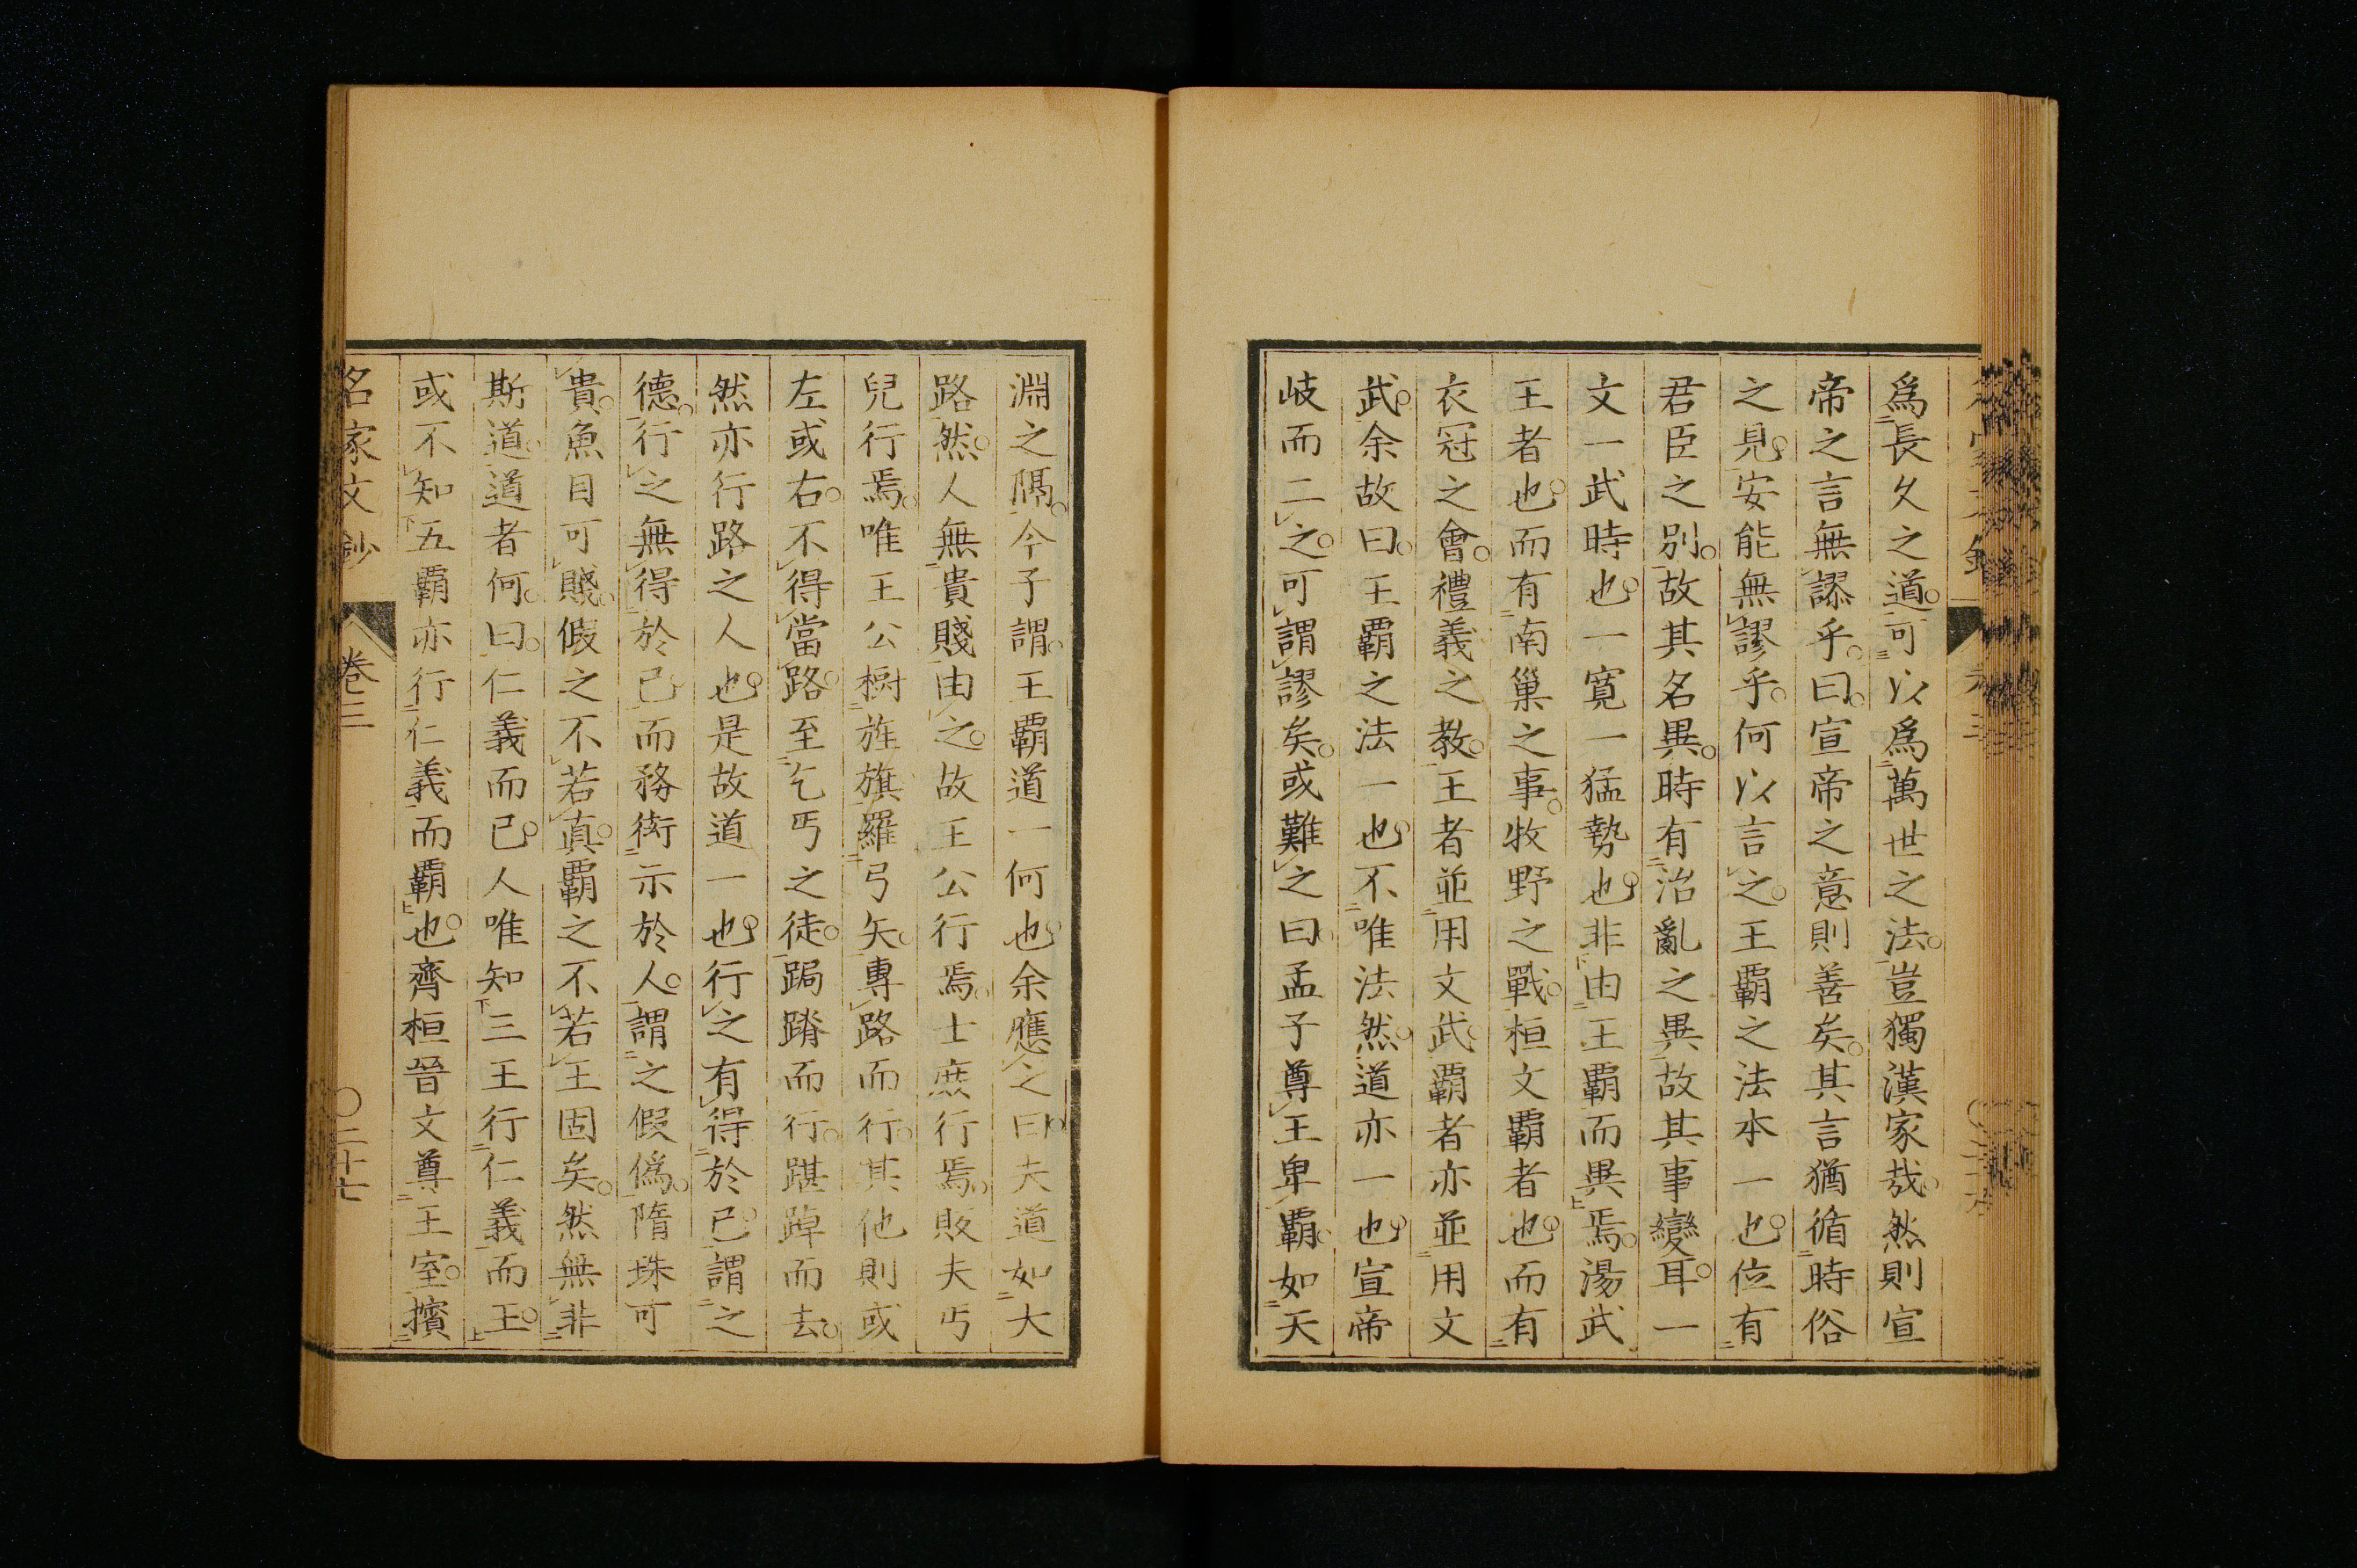 爲長久之道可以爲萬世之法豈獨漢家哉然則宣
帝之言無謬乎曰宣帝之意則善矣其言猶循時俗
之見安能無謬乎何以言之王霸之法本一也位有
君臣之別故其名異時有治亂之異故其事變耳一
文一武時也一寬一猛勢也非由王霸而異焉湯武
王者也而有南巢之事牧野之戰桓文霸者也而有
衣冠之會禮義之教王者並用文武霸者亦並用文
武余故曰王霸之法一也不唯法然道亦一也宣帝
岐而二之可謂謬矣或難之曰孟子尊王卑霸如天
淵之隔今子謂王霸道一何也余應之曰夫道如大
路然人無貴賤由之故王公行焉士庶行焉販夫丐
兒行焉唯王公樹旌旗羅弓矢專路而行其他則或
左或右不得當路至乞丐之徒跼蹐而行踸踔而去
然亦行路之人也是故道一也行之有得於己謂之
德行之無得於己而務衒示於人謂之假僞隋珠可
貴魚目可賤假之不若真霸之不若王固矣然無非
斯道道者何曰仁義而已人唯知三王行仁義而王
或不知五霸亦行仁義而霸也齊桓晉文尊王室擯
名家文鈔 卷三 二十七